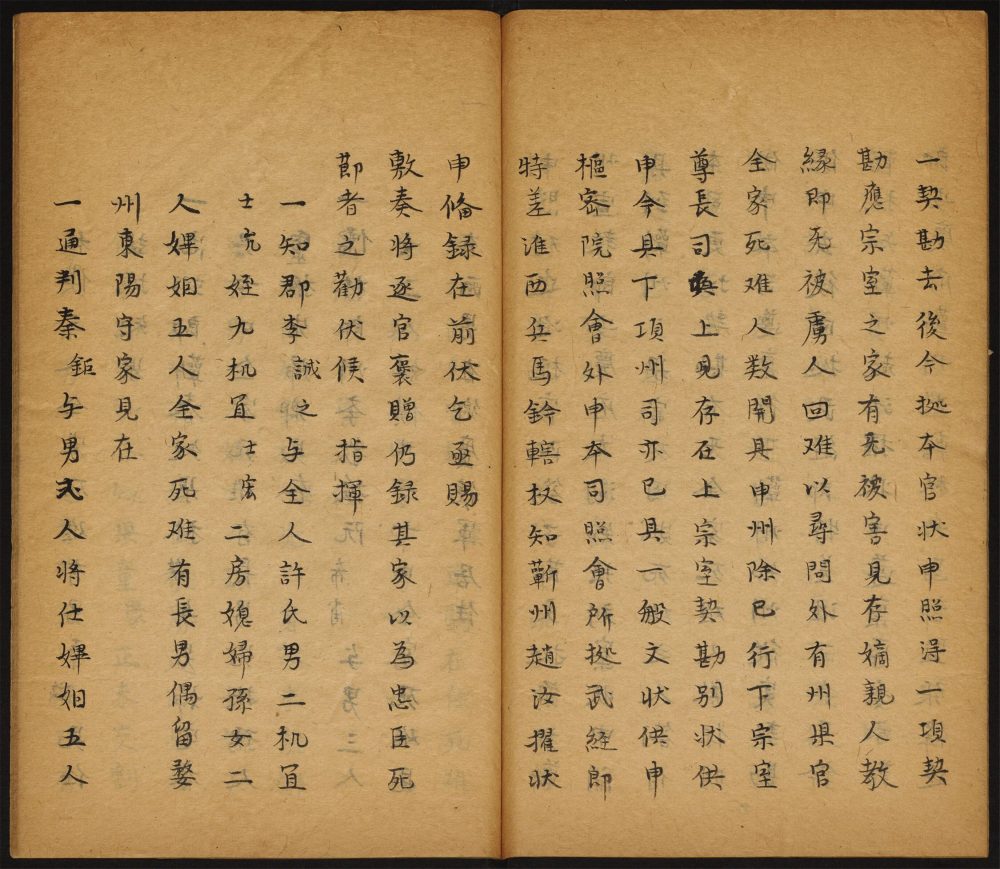 一契勘去後今拠本官状申照得一項契
勘應宗室之家有无被害見存嫡親人教
緣即死被虜人回难以尋問外有州県官
全家死难人数開具申州除已行下宗室
尊長司喚上見存在上宗室契勘別状供
申今具下項州司亦已具一般文状供申
樞密院照會外申本司照會所拠武経郎
特差淮西兵馬鈐轄权知蘄州趙汝擢状
申俻録在前伏乞亟賜
敷奏将逐官褒贈仍録其家以為忠臣死
節者之勸伏候指揮
一知郡李誠之与仝人許氏男二机宜
士亢姪九机宜士宏二房媳婦孫女二
人婢妲五人全家死难有長男偶留婺
州東陽守家見在
一通判秦鉅与男弍人将仕婢妲五人